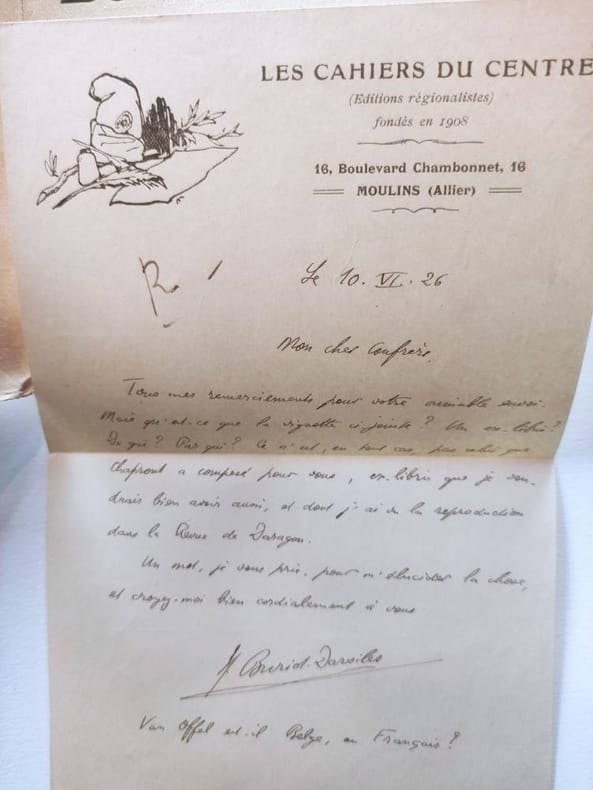 LES CAHIERS DU CENTRE
(Editions régionalistes)
fondés en 1908
16, Boulevard Chambonnet, 16
MOULINS (Allier)
R
Le 10. VI. 26
Mon cher Confrère,
Tous mes remerciements pour votre aimable envoi.
Mais qu'est-ce que la vignette ci-jointe ? Un ex-libris ?
De qui ? Par qui ? Ce n'est, en tout cas, pas celui que
Chapront a composé pour vous, ex-libris que je vou-
drais bien avoir aussi, et dont j'ai vu la reproduction
dans la Revue de Daragon.
Un mot, je vous prie, pour m'élucider la chose,
et croyez-moi bien cordialement à vous
Buriot-Darsiles
Van Offel est-il Belge, ou Français ?